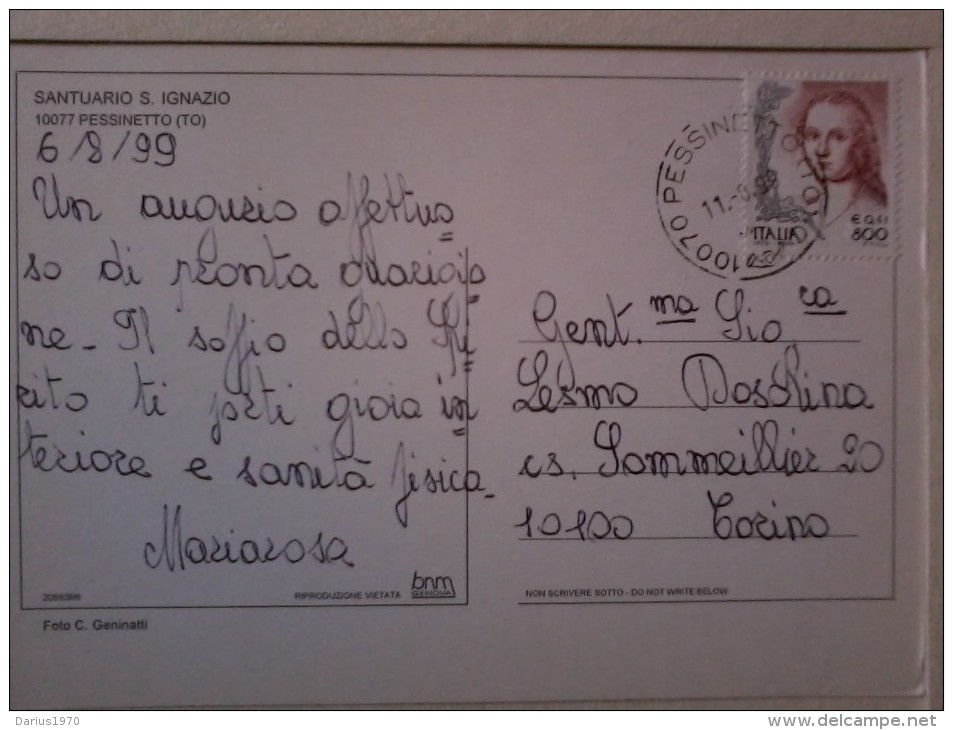 SANTUARIO S. IGNAZIO
10077 PESSINETTO (TO)
6/8/99
Un augurio affettuo
so di pronta guarigio
ne - Il soffio dello Spi
rito ti porti gioia in
teriore e sanità fisica -
Mariarosa
RIPRODUZIONE VIETATA
bnm
GENOVA
Foto C. Geninatti
10070 PESSINETTO (TO)
11.-8.99
ITALIA
€ 0,41
800
Gent.ma Sig.ra
Lesmo Doschina
cs. Sommeillier 20
10100 Torino
NON SCRIVERE SOTTO - DO NOT WRITE BELOW
Darius1970
www.delcampe.net